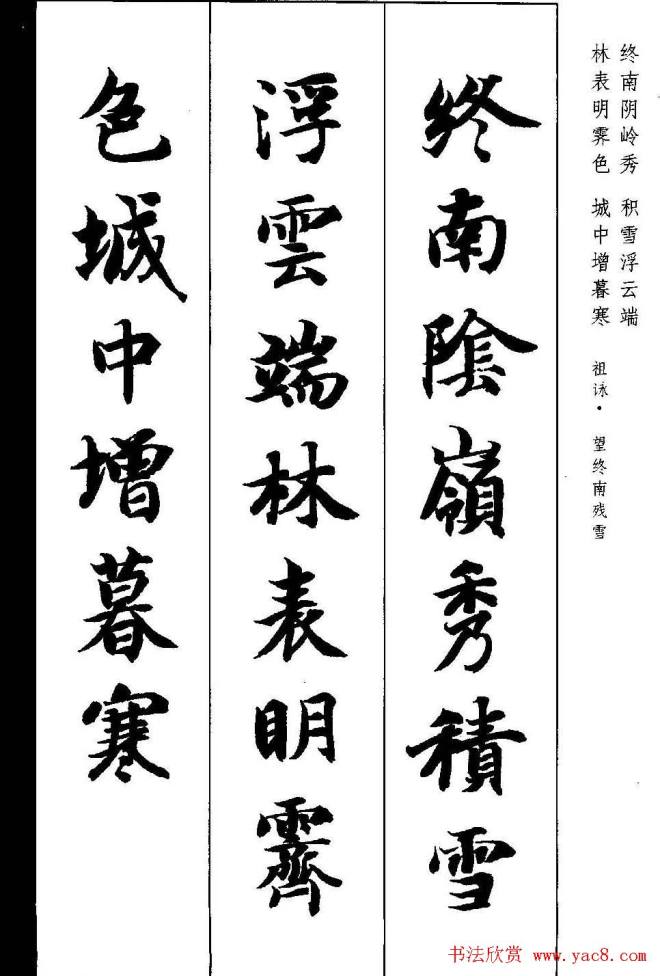 终南阴岭秀 积雪浮云端
林表明霁色 城中增暮寒 祖咏·望终南残雪
終南陰嶺秀積雪
浮雲端林表明霽
色城中增暮寒
书法欣赏 www.yac8.com